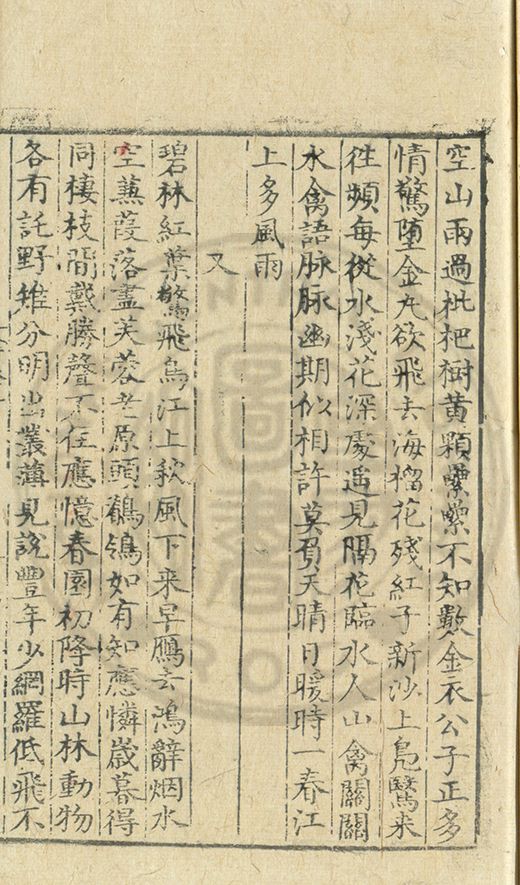 空山雨過枇杷樹黄顆纍纍不知數金衣公子正多
情驚墮金丸欲飛去海榴花殘紅子新沙上鳬鷖来
徃頻每從水淺花深處遥見隔花臨水人山禽關關
水禽語脉脉幽期似相許莫負天晴日暖時一春江
上多風雨
又
碧林紅葉驚飛烏江上秋風下来早鴈去鴻辭烟水
空蒹葭落盡芙蓉老原頭鶺鴒如有知應憐歲暮得
同棲枝間戴勝聲不住應憶春園初降時山林動物
各有託野雉分明出叢薄見說豐年少網羅低飛不